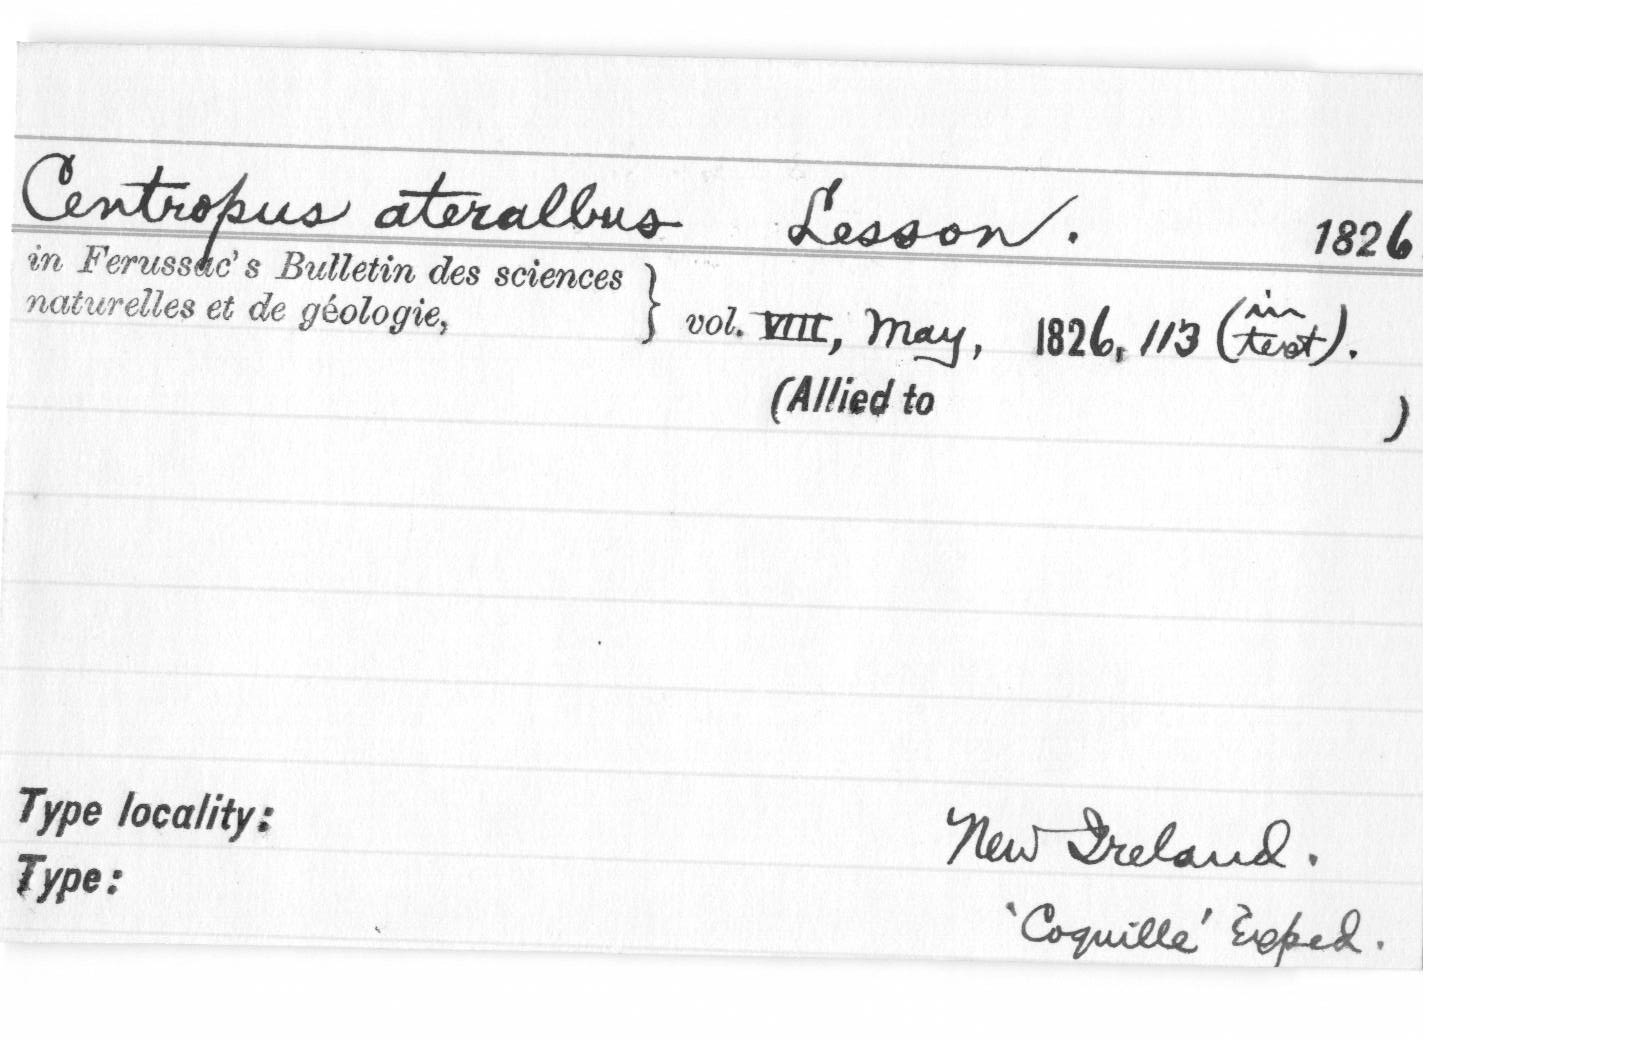 Centropus ateralbus Lesson. 1826
in Ferussac's Bulletin des sciences
naturelles et de géologie, } vol. VIII, May, 1826, 113 (in text).
(Allied to )
Type locality: New Ireland.
Type: 'Coquille' Exped.